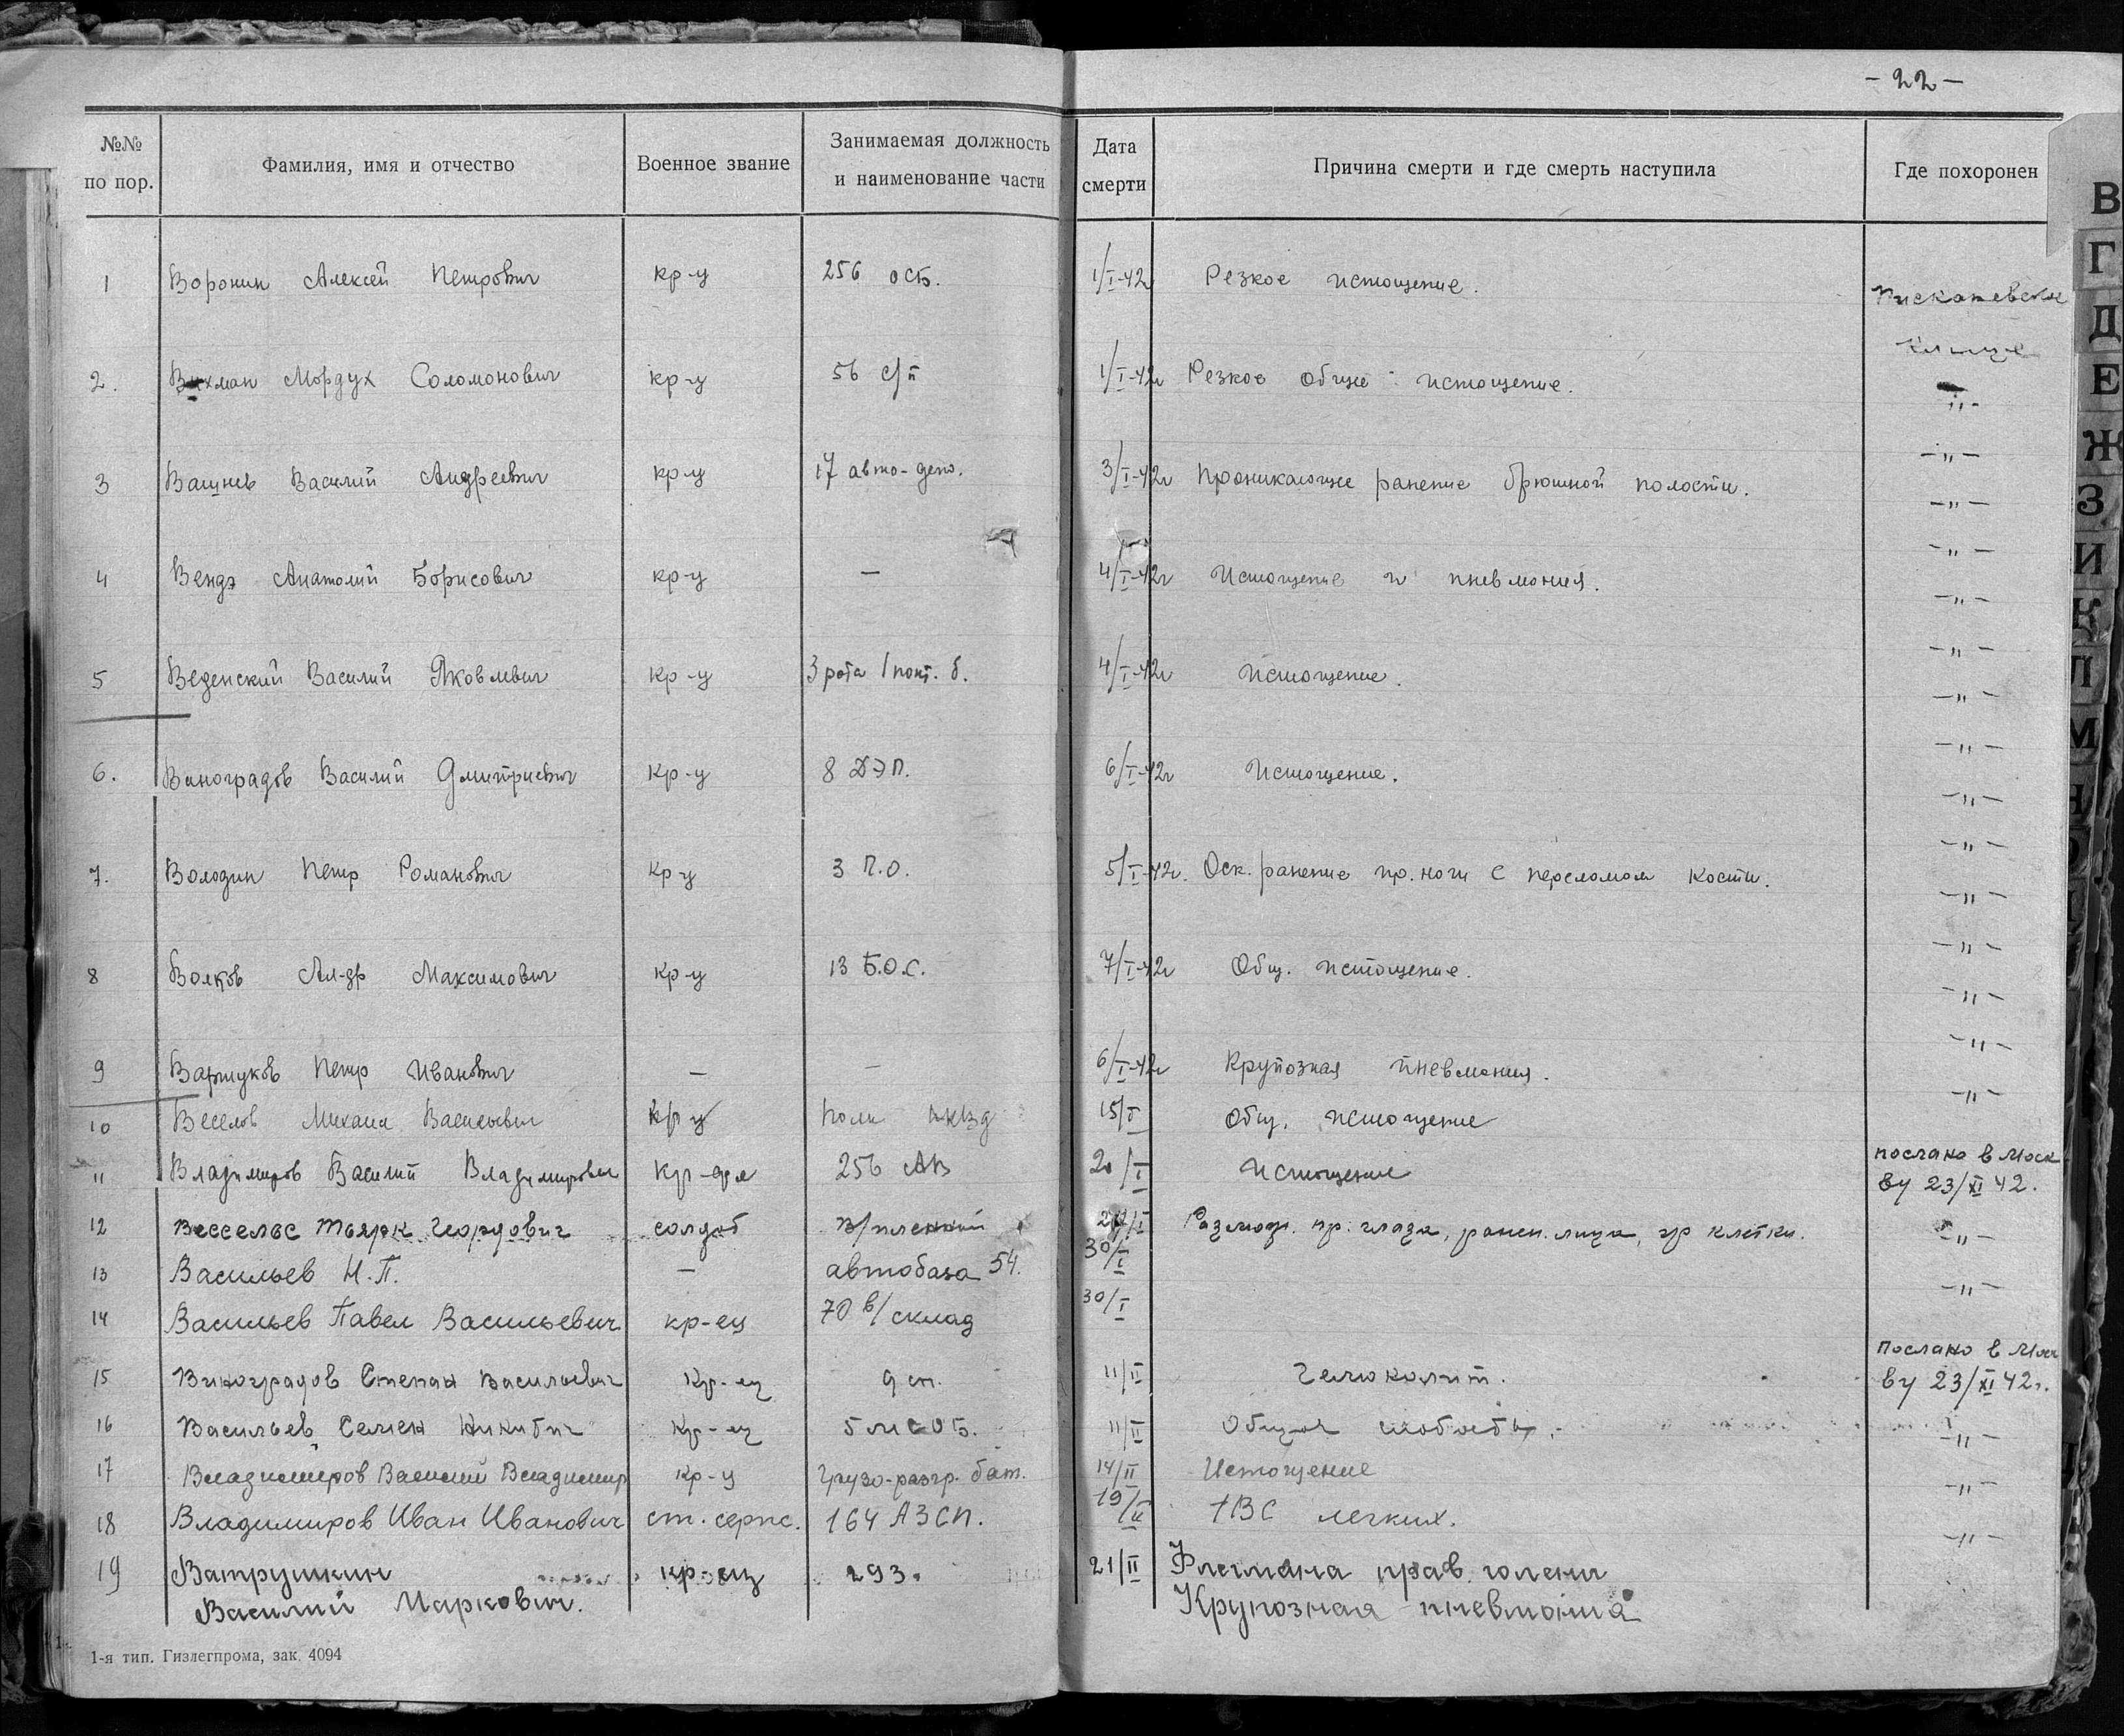 - 22 -
№№ по пор. Фамилия, имя и отчество Военное звание Занимаемая должность и наименование части Дата смерти Причина смерти и где смерть наступила Где похоронен
1 Воронин Алексей Петрович кр-ц 256 ОСБ. 1/I-42г Резкое истощение. Пискаревское
кл-ще
2. Вихман Мордух Соломонович кр-ц 56 с/п 1/I-42г Резкое общее истощение. -"-
-"-
3 Вашнев Василий Андреевич кр-ц 17 авто-депо. 3/I-42г Проникающее ранение брюшной полости. -"-
-"-
4 Вендэ Анатолий Борисович кр-ц — 4/I-42г Истощение и пневмония. -"-
-"-
5 Веденский Василий Яковлевич кр-ц 3 рота 1 понт. б. 4/I-42г Истощение. -"-
-"-
6. Виноградов Василий Дмитриевич кр-ц 8 ДЭП. 6/I-42г Истощение. -"-
-"-
7. Володин Петр Романович кр-ц 3 П.О. 5/I-42г. Оск. ранение пр. ноги с переломом кости. -"-
-"-
8 Волков Ал-др Максимович кр-ц 13 Б.О.С. 7/I-42г Общ. истощение. -"-
-"-
9 Петр Иванович — — 6/I-42г Крупозная пневмония. -"-
10 Веселов Михаил Васильевич кр-ц полк НКВД 15/I Общ. истощение -"-
11 Владимиров Василий Владимирович 256 20/I Истощение послано в Моск
ву 23/XI 42.
12 Вессельс Тьярк солдат в/пленный Размозж. пр. глаза, ранен. лица, гр клетки. -"-
13 Васильев Н.П. — автобаза 54. 30/I -"-
14 Васильев Павел Васильевич кр-ец 70 в/склад 30/I
15 Виноградов Степан Васильевич кр-ец 9 сп. 11/II Гемоколит. послано в Мос
ву 23/XI 42г.
16 Васильев Семен Никитич кр-ец 11/II Общая слабость. -"-
17 Владимиров Василий Владимир кр-ц Грузо-разгр. бат. 14/II Истощение -"-
18 Владимиров Иван Иванович ст. серж. 164 АЗСП. 19/II ТВС легких. -"-
19 Ватрушкин кр-ец 293. 21/II Флегмона прав. голени
Василий Маркович. Крупозная пневмония
1-я тип. Гизлегпрома, зак. 4094
В
Г
Д
Е
Ж
З
И
К
Л
М
Н